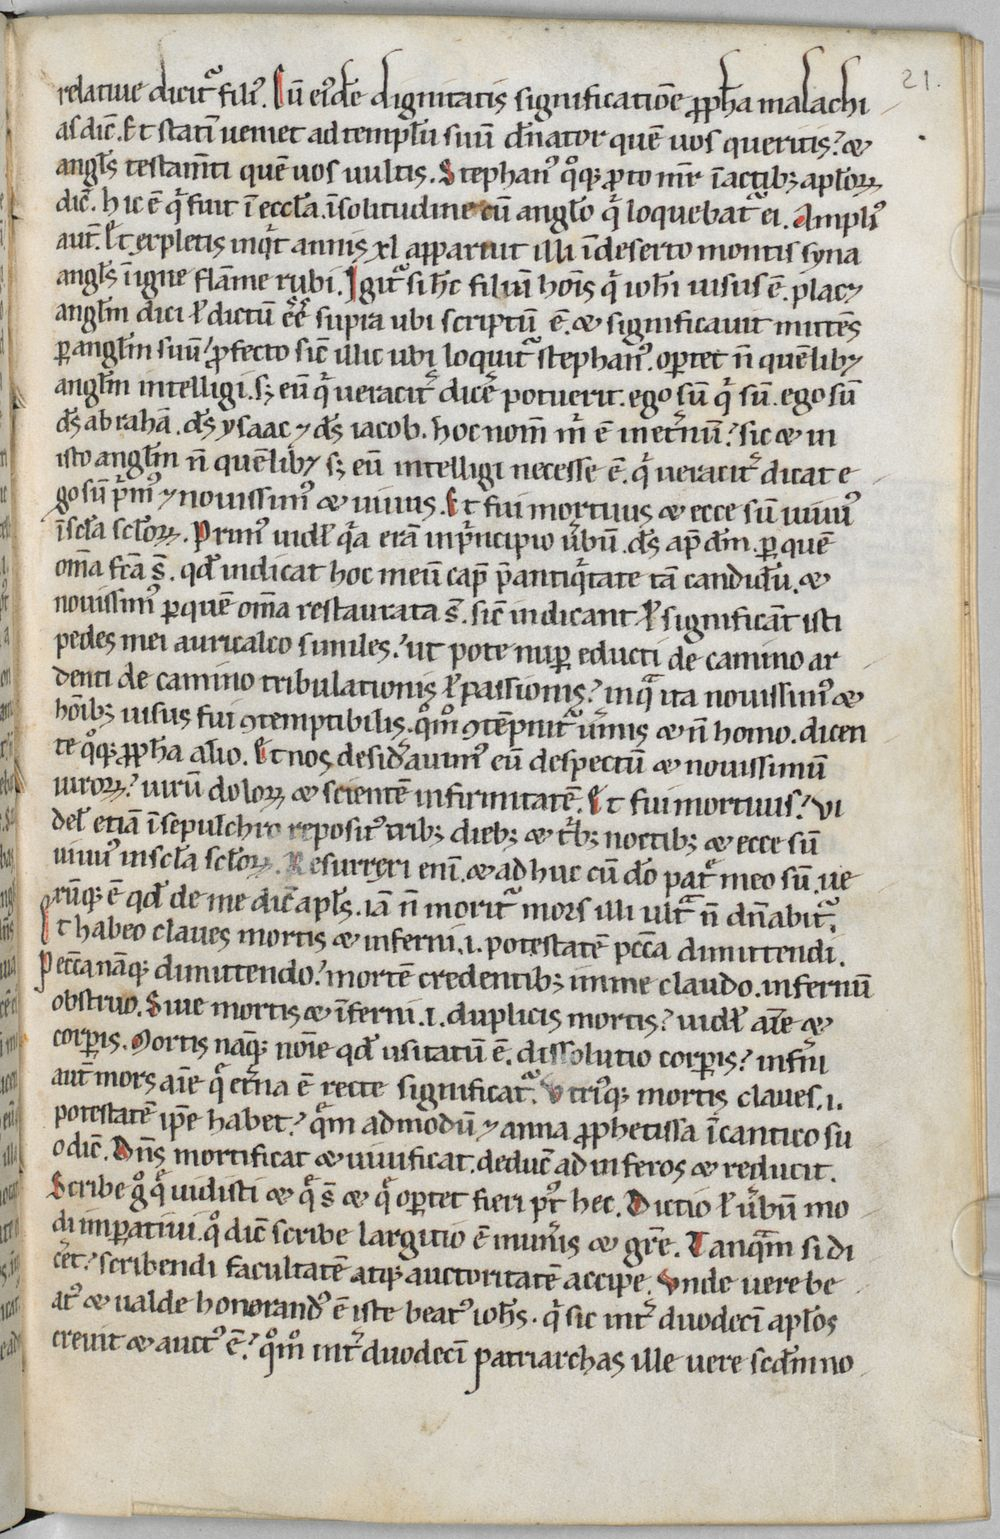 21.
relatiue dicit᷑ filiꝰ. Iū eiꝰdē dignitatis significatiōe ꝓph̄a malachi
as dic̄. Et stati᷑ ueniet ad templ̄u suū dn̄ator quē uos queritis? &
angl̄s testam̄ti quē uos uultis. Stephanꝰ qͦqꝫ ꝓto mr̄ ī actibꝫ apl̄oꝝ
dic̄. hic ē qͥ fuit ī eccl̄a. ī solitudine cū angl̄o qͥ loquebat᷑ ei. Ampliꝰ
aut̄. Et expletis inqͥt annis xl apparuit illi ī deserto montis syna
angl̄s ī igne flam̄e rubi. Igit᷑ si hͦc filiū hoīs qͥ ioh̄i uisus ē. placꝫ
angl̄m dici ł dictū ēē supra ubi scriptū ē. & significauit mittēs
ꝑ angl̄m suū? ꝓfecto sic̄ illic ubi loquit᷑ stephanꝰ. oꝑtet n̄ quēlibꝫ
angl̄m intelligi. sꝫ eū qͥ ueracit᷑ dic̄e potuerit. ego sū qͥ sū. ego sū
ds̄ abrahā. ds̄ ysaac ⁊ ds̄ iacob. hoc nom̄ m̄ ē in et᷑nū? sic & in
isto angl̄m n̄ quēlibꝫ sꝫ eū intelligi necesse ē. qͥ ueracit᷑ dicat e
go sū pͥmꝰ ⁊ nouissimꝰ & uiuus. Et fui mortuus & ecce sū uiuuꝰ
ī scl̄a scl̄oꝝ. Primꝰ uidel̄ qͥa erā in pͥncipio u᷑bū. ds̄ ap̄ dm̄. ꝑ quē
om̄a fc̄a s̄. qd̄ indicat hoc meū cap̄ p̄ antiqͥtate tā candidū. &
nouissimꝰ ꝑ quē om̄a restaurata s̄. sic̄ indicant ł significāt isti
pedes mei auricalco similes? ut pote nuꝑ educti de camino ar
denti de camino tribulationis ł passionis? inqͣ ita nouissimꝰ &
hōibꝫ uisus fui ꝯtemptibilis. qͦmͦ ꝯtēpnit᷑ u᷑mis & n̄ homo. dicen
te qͦqꝫ ꝓph̄a alio. Et nos desid᷑auimꝰ eū despectū & nouissimū
uiroꝝ? uirū doloꝝ & scientē infirmitatē. Et fui mortuus? ui
del̄ etiā ī sepulchro repositꝰ tribꝫ diebꝫ & tͥbꝫ noctibꝫ & ecce sū
uiuuꝰ in scl̄a scl̄oꝝ. Resurrexi eni᷑. & adhuc cū dō pat᷑ meo sū. ue
rūqꝫ ē qd̄ de me dic̄ apl̄s. iā n̄ morit᷑ mors illi ult᷑ n̄ dn̄abit᷑.
Et habeo claues mortis & inferni .i. potestatē pcc̄a dimittendi.
Pecc̄a nāqꝫ dimittendo? mortē credentibꝫ in me claudo. infernū
obstruo. Siue mortis & īferni .i. duplicis mortis? uidel̄ aīe &
corꝑis. Mortis nāqꝫ nōīe qd̄ usitatū ē. dissolutio corꝑis? inf᷑ni
aut̄ mors aīe qͣ et᷑na ē recte significat᷑. Vtriꝰqꝫ mortis claues .i.
potestatē ip̄e habet? qͣm admodū ⁊ anna ꝓphetissa ī cantico su
o dic̄. Dn̄s mortificat & uiuificat. deduc̄ ad inferos & reducit.
Scribe gͦ qͣ uidisti & qͣ s̄ & qͣ oꝑtet fieri pͦt hec. Dictio ł u᷑bū mo
di imꝑatiui. qͦ dic̄ scribe largitio ē mun᷑is & gr̄e. Tanqͣm si di
c᷑et? scribendi facultatē atqꝫ auctoritatē accipe. Vnde uere be
atꝰ & ualde honorandꝰ ē iste beatꝰ ioh̄s. qͥ sic int᷑ duodeci᷑ apl̄os
creuit & auctꝰ ē? qͦmͦ int᷑ duodeci᷑ patriarchas ille uere scd̄m no